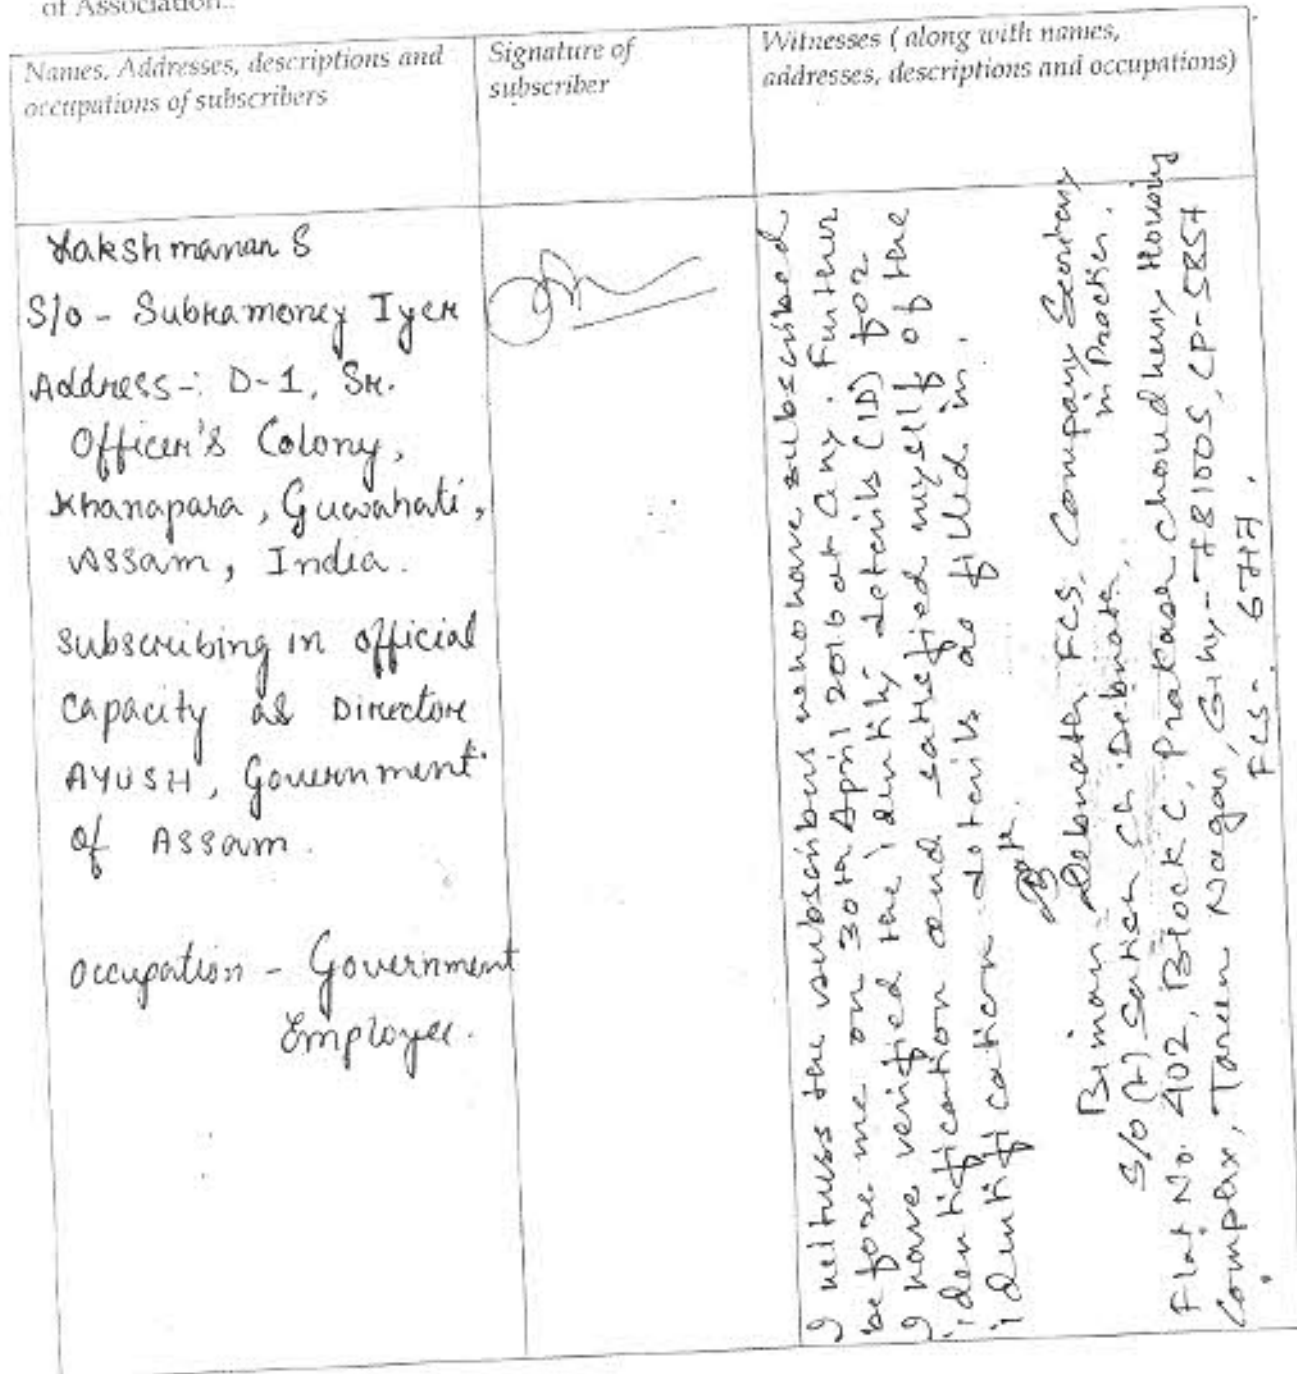 of Association..
Names, Addresses, descriptions and
occupations of subscribers
Signature of
subscriber
Witnesses ( along with names,
addresses, descriptions and occupations)
Lakshmanan S
S/o - Subramoney Iyer
Address-: D-1, Sr.
Officer's Colony,
Khanapara, Guwahati,
Assam, India.
Subscribing in official
capacity as Director
AYUSH, Government
of Assam.
Occupation - Government
Employee.
I witness the subscribers who have subscribed
before me on 30th April 2016 at Ghy. Further
I have verified the identity details (ID) for
identification and satisfied myself of the
identification details as filled in.
Biman Debnath, FCS, Company Secretary
in Practice.
S/o (L) Satish Ch. Debnath,
Flat No. 402, Block C, Prakash Choudhury Housing
Complex, Tarun Nagar, Ghy-781005, CP-5857
FCS- 6717.